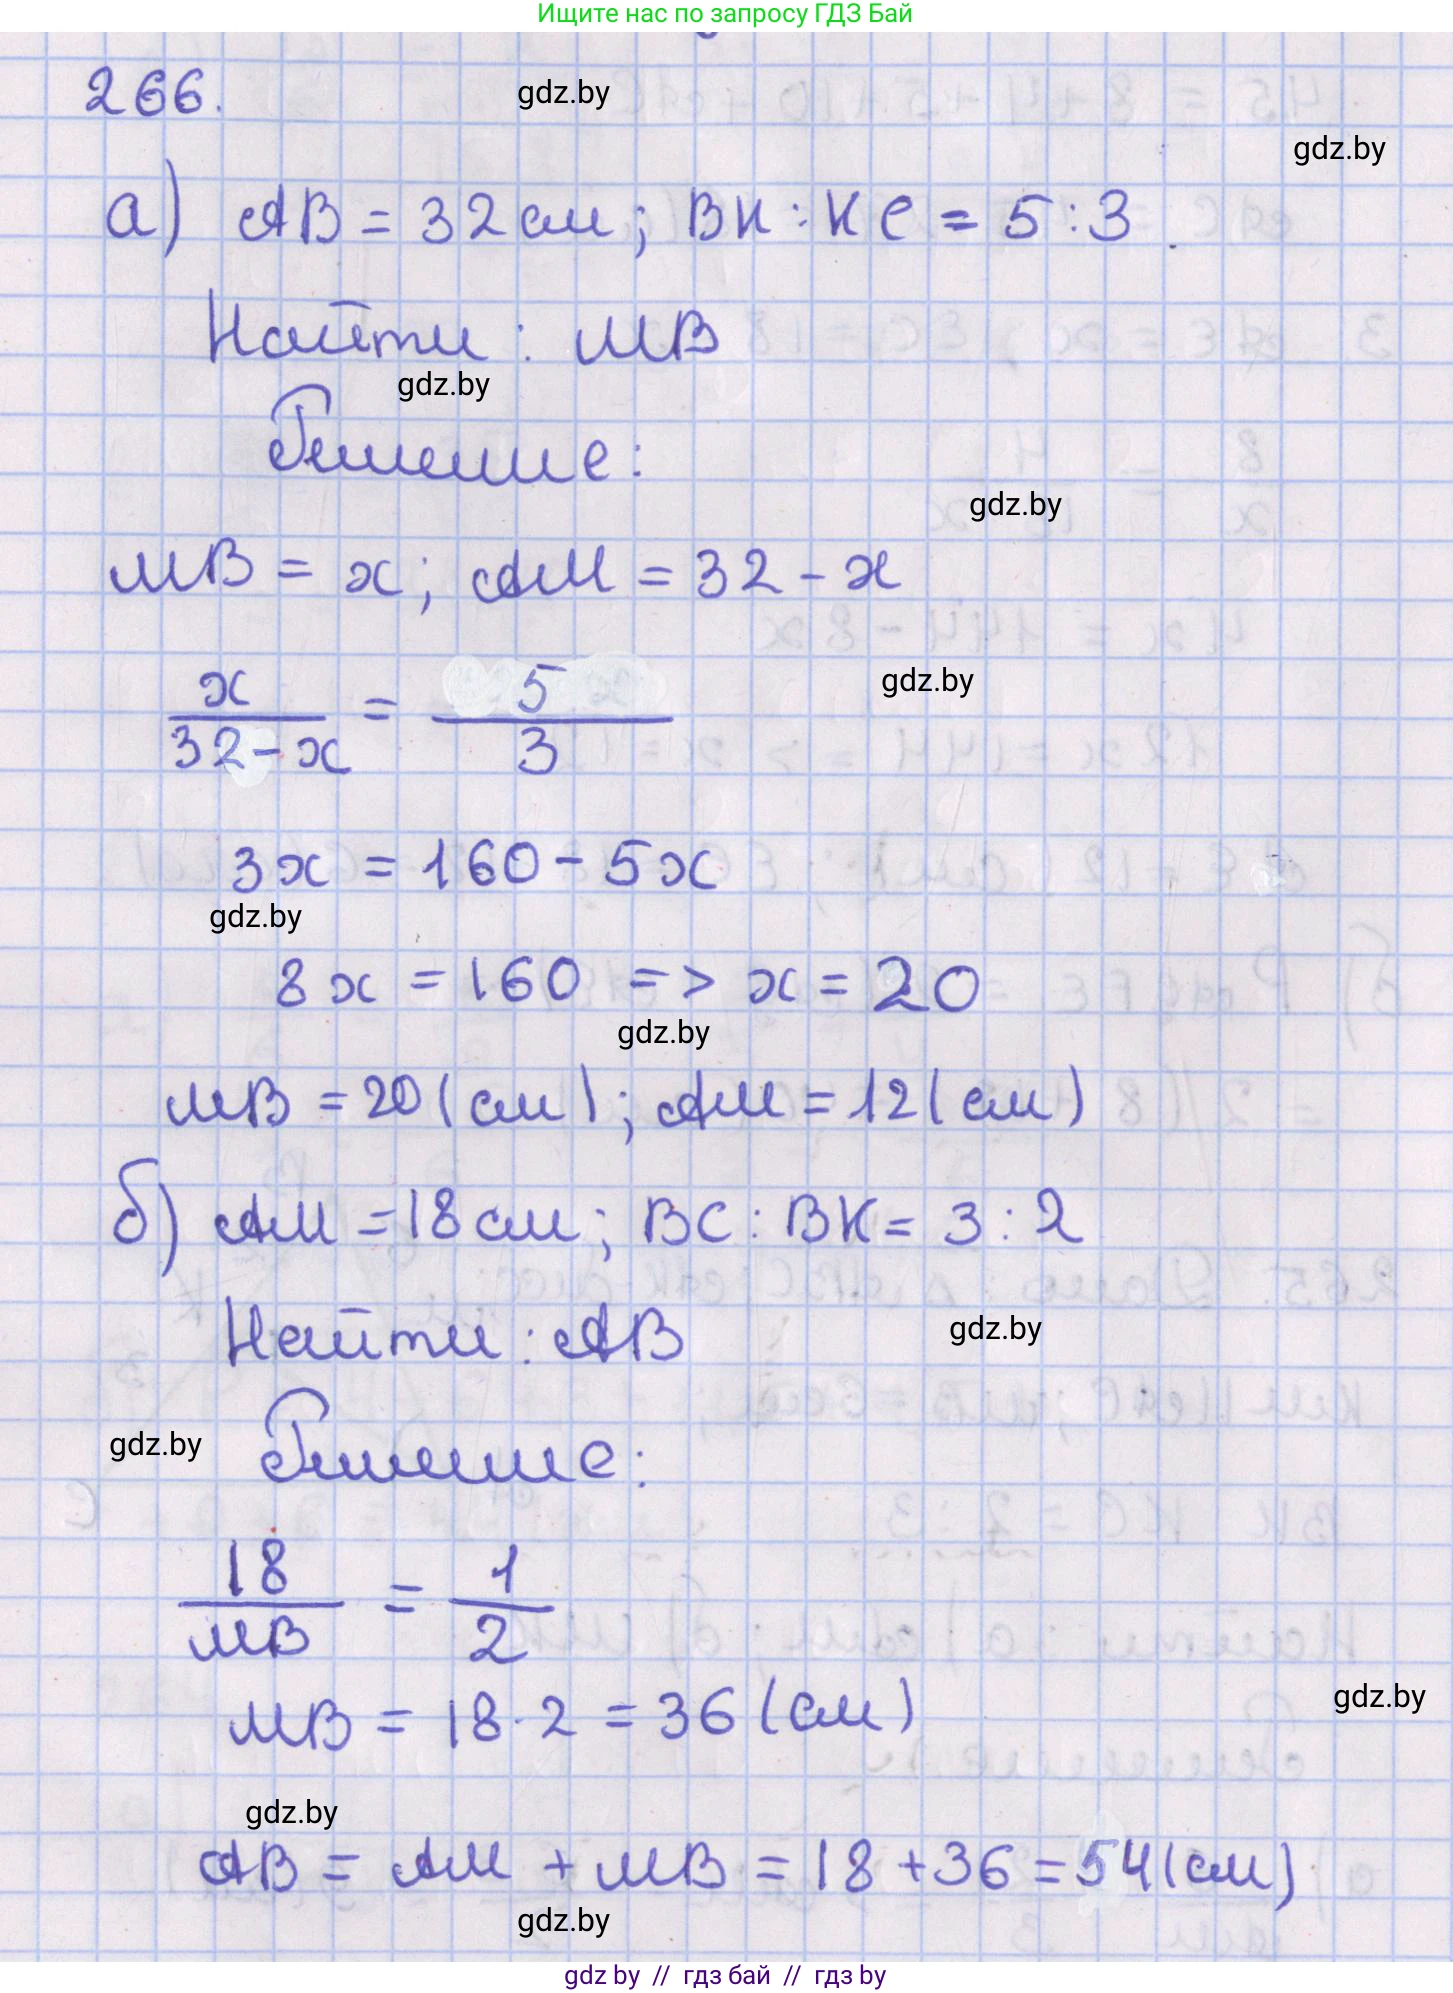 Ищите нас по запросу ГДЗ Бай
266.
gdz.by
gdz.by
а) AB = 32 см; BK : KC = 5 : 3.
Найти : MB
gdz.by
Решение:
gdz.by
MB = x; AM = 32 - x
gdz.by
x/(32-x) = 5/3
3x = 160 - 5x
gdz.by
8x = 160 => x = 20
gdz.by
MB = 20 (см); AM = 12 (см)
б) AM = 18 см; BC : BK = 3 : 2
Найти : AB
gdz.by
gdz.by
Решение:
18/MB = 1/2
MB = 18 · 2 = 36 (см)
gdz.by
gdz.by
AB = AM + MB = 18 + 36 = 54 (см)
gdz.by
gdz by // гдз бай // гдз by